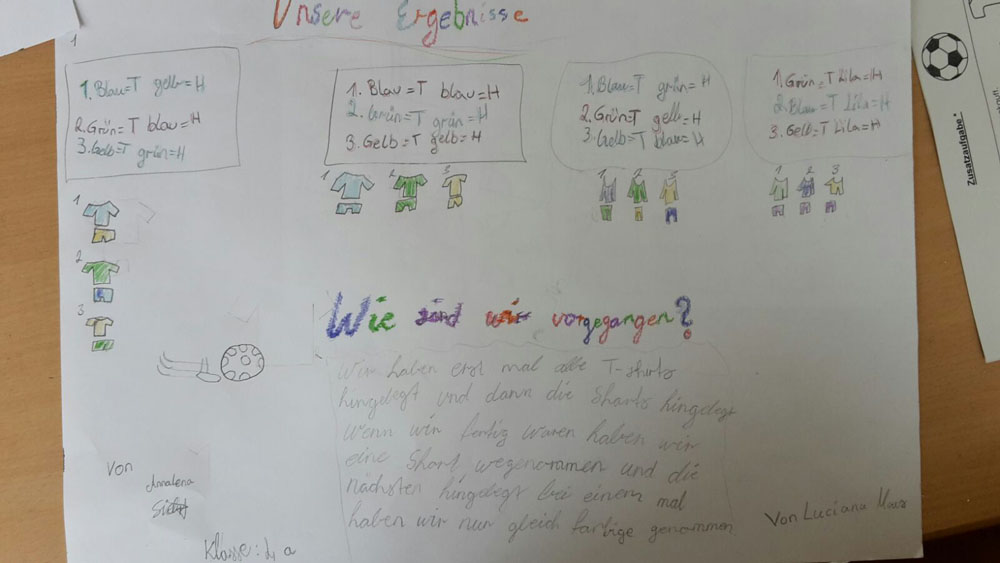 Unsere Ergebnisse
1
1. Blau=T gelb=H
2. Grün=T blau=H
3. Gelb=T grün=H
1. Blau=T blau=H
2. Grün=T grün=H
3. Gelb=T gelb=H
1. Blau=T grün=H
2. Grün=T gelb=H
3. Gelb=T blau=H
1. Grün=T Lila=H
2. Blau=T Lila=H
3. Gelb=T Lila=H
1 2 3
1 2 3
1 2 3
1
2
3
Wie sind wir vorgegangen?
Wir haben erst mal alle T-shirts
hingelegt und dann die Shorts hingelegt
Wenn wir fertig waren haben wir
eine Short wegenommen und die
nächsten hingelegt bei einem mal
haben wir nur gleich farbige genommen
Von
Annalena
Klasse: 4 a
Von Luciana
Zusatzaufgabe